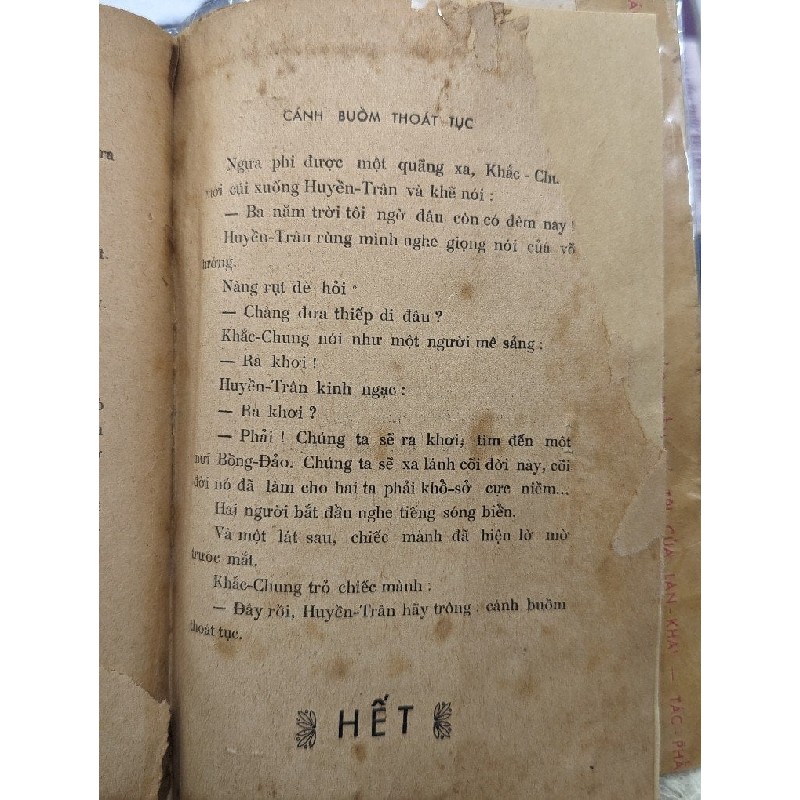 CÁNH BUỒM THOÁT TỤC
Ngựa phi được một quãng xa, Khắc-Chu
cúi xuống Huyền-Trân và khẽ nói :
— Ba năm trời tôi ngờ đâu còn có đêm nay !
Huyền-Trân rùng mình nghe giọng nói của võ
tướng.
Nàng rụt dè hỏi :
— Chàng đưa thiếp đi đâu ?
Khắc-Chung nói như một người mê sảng :
— Ra khơi !
Huyền-Trân kinh ngạc :
— Ra khơi ?
— Phải ! Chúng ta sẽ ra khơi, tìm đến một
núi Bồng-Đảo. Chúng ta sẽ xa lánh cõi đời nay, cõi
đời nó đã làm cho hai ta phải khổ-sở cực niềm...
Hai người bắt đầu nghe tiếng sóng biển.
Và một lát sau, chiếc mành đã hiện lờ mờ
trước mắt.
Khắc-Chung trỏ chiếc mành :
— Đây rồi, Huyền-Trân hãy trông : cánh buồm
thoát tục.
HẾT
ra
t.
CỦA TÂN-KHAI — TÁC PHẨ